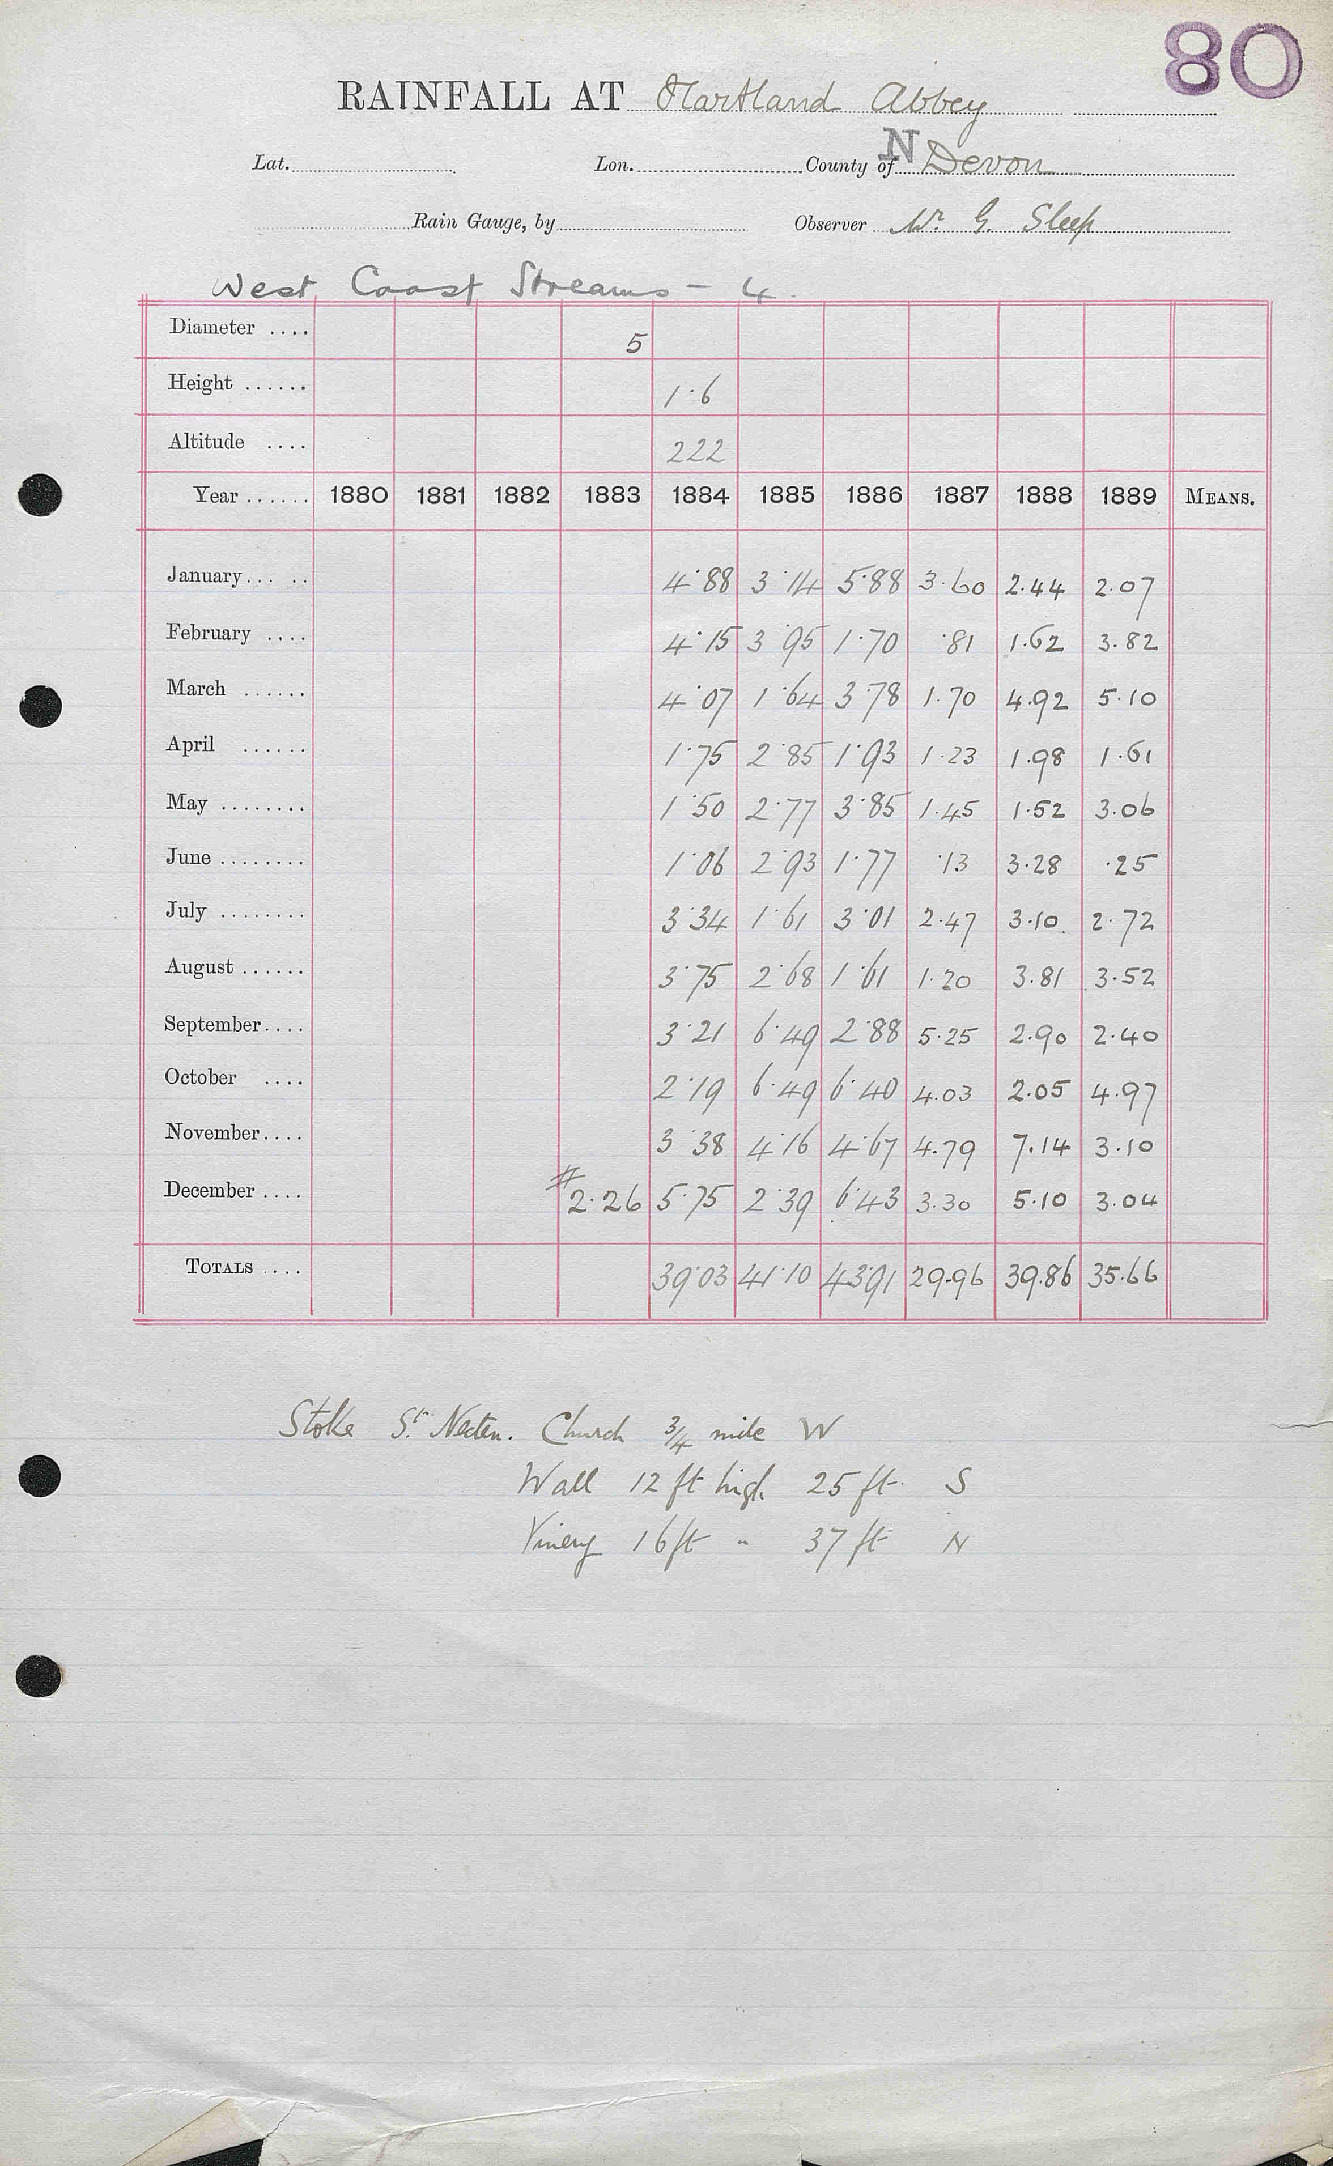 80
RAINFALL AT Hartland Abbey
Lat. Lon. County of N Devon
Rain Gauge, by Observer Mr G Sleep
West Coast Streams - 4.
Diameter .... 5
Height ...... 1·6
Altitude .... 222
Year ...... 1880 1881 1882 1883 1884 1885 1886 1887 1888 1889 MEANS.
January... .. 4·88 3·14 5·88 3·60 2·44 2·07
February .... 4·15 3·95 1·70 ·81 1·62 3·82
March ...... 4·07 1·64 3·78 1·70 4·92 5·10
April ...... 1·75 2·85 1·93 1·23 1·98 1·61
May ........ 1·50 2·77 3·85 1·45 1·52 3·06
June ........ 1·06 2·93 1·77 ·13 3·28 ·25
July ........ 3·34 1·61 3·01 2·47 3·10 2·72
August ...... 3·75 2·68 1·61 1·20 3·81 3·52
September.... 3·21 6·49 2·88 5·25 2·90 2·40
October .... 2·19 6·49 6·40 4·03 2·05 4·97
November.... 3·38 4·16 4·67 4·79 7·14 3·10
December .... #2·26 5·75 2·39 6·43 3·30 5·10 3·04
TOTALS .... 39·03 41·10 43·91 29·96 39·86 35·66
Stoke St. Necten. Church 3/4 mile W
Wall 12 ft high 25 ft S
Vinery 16 ft " 37 ft N